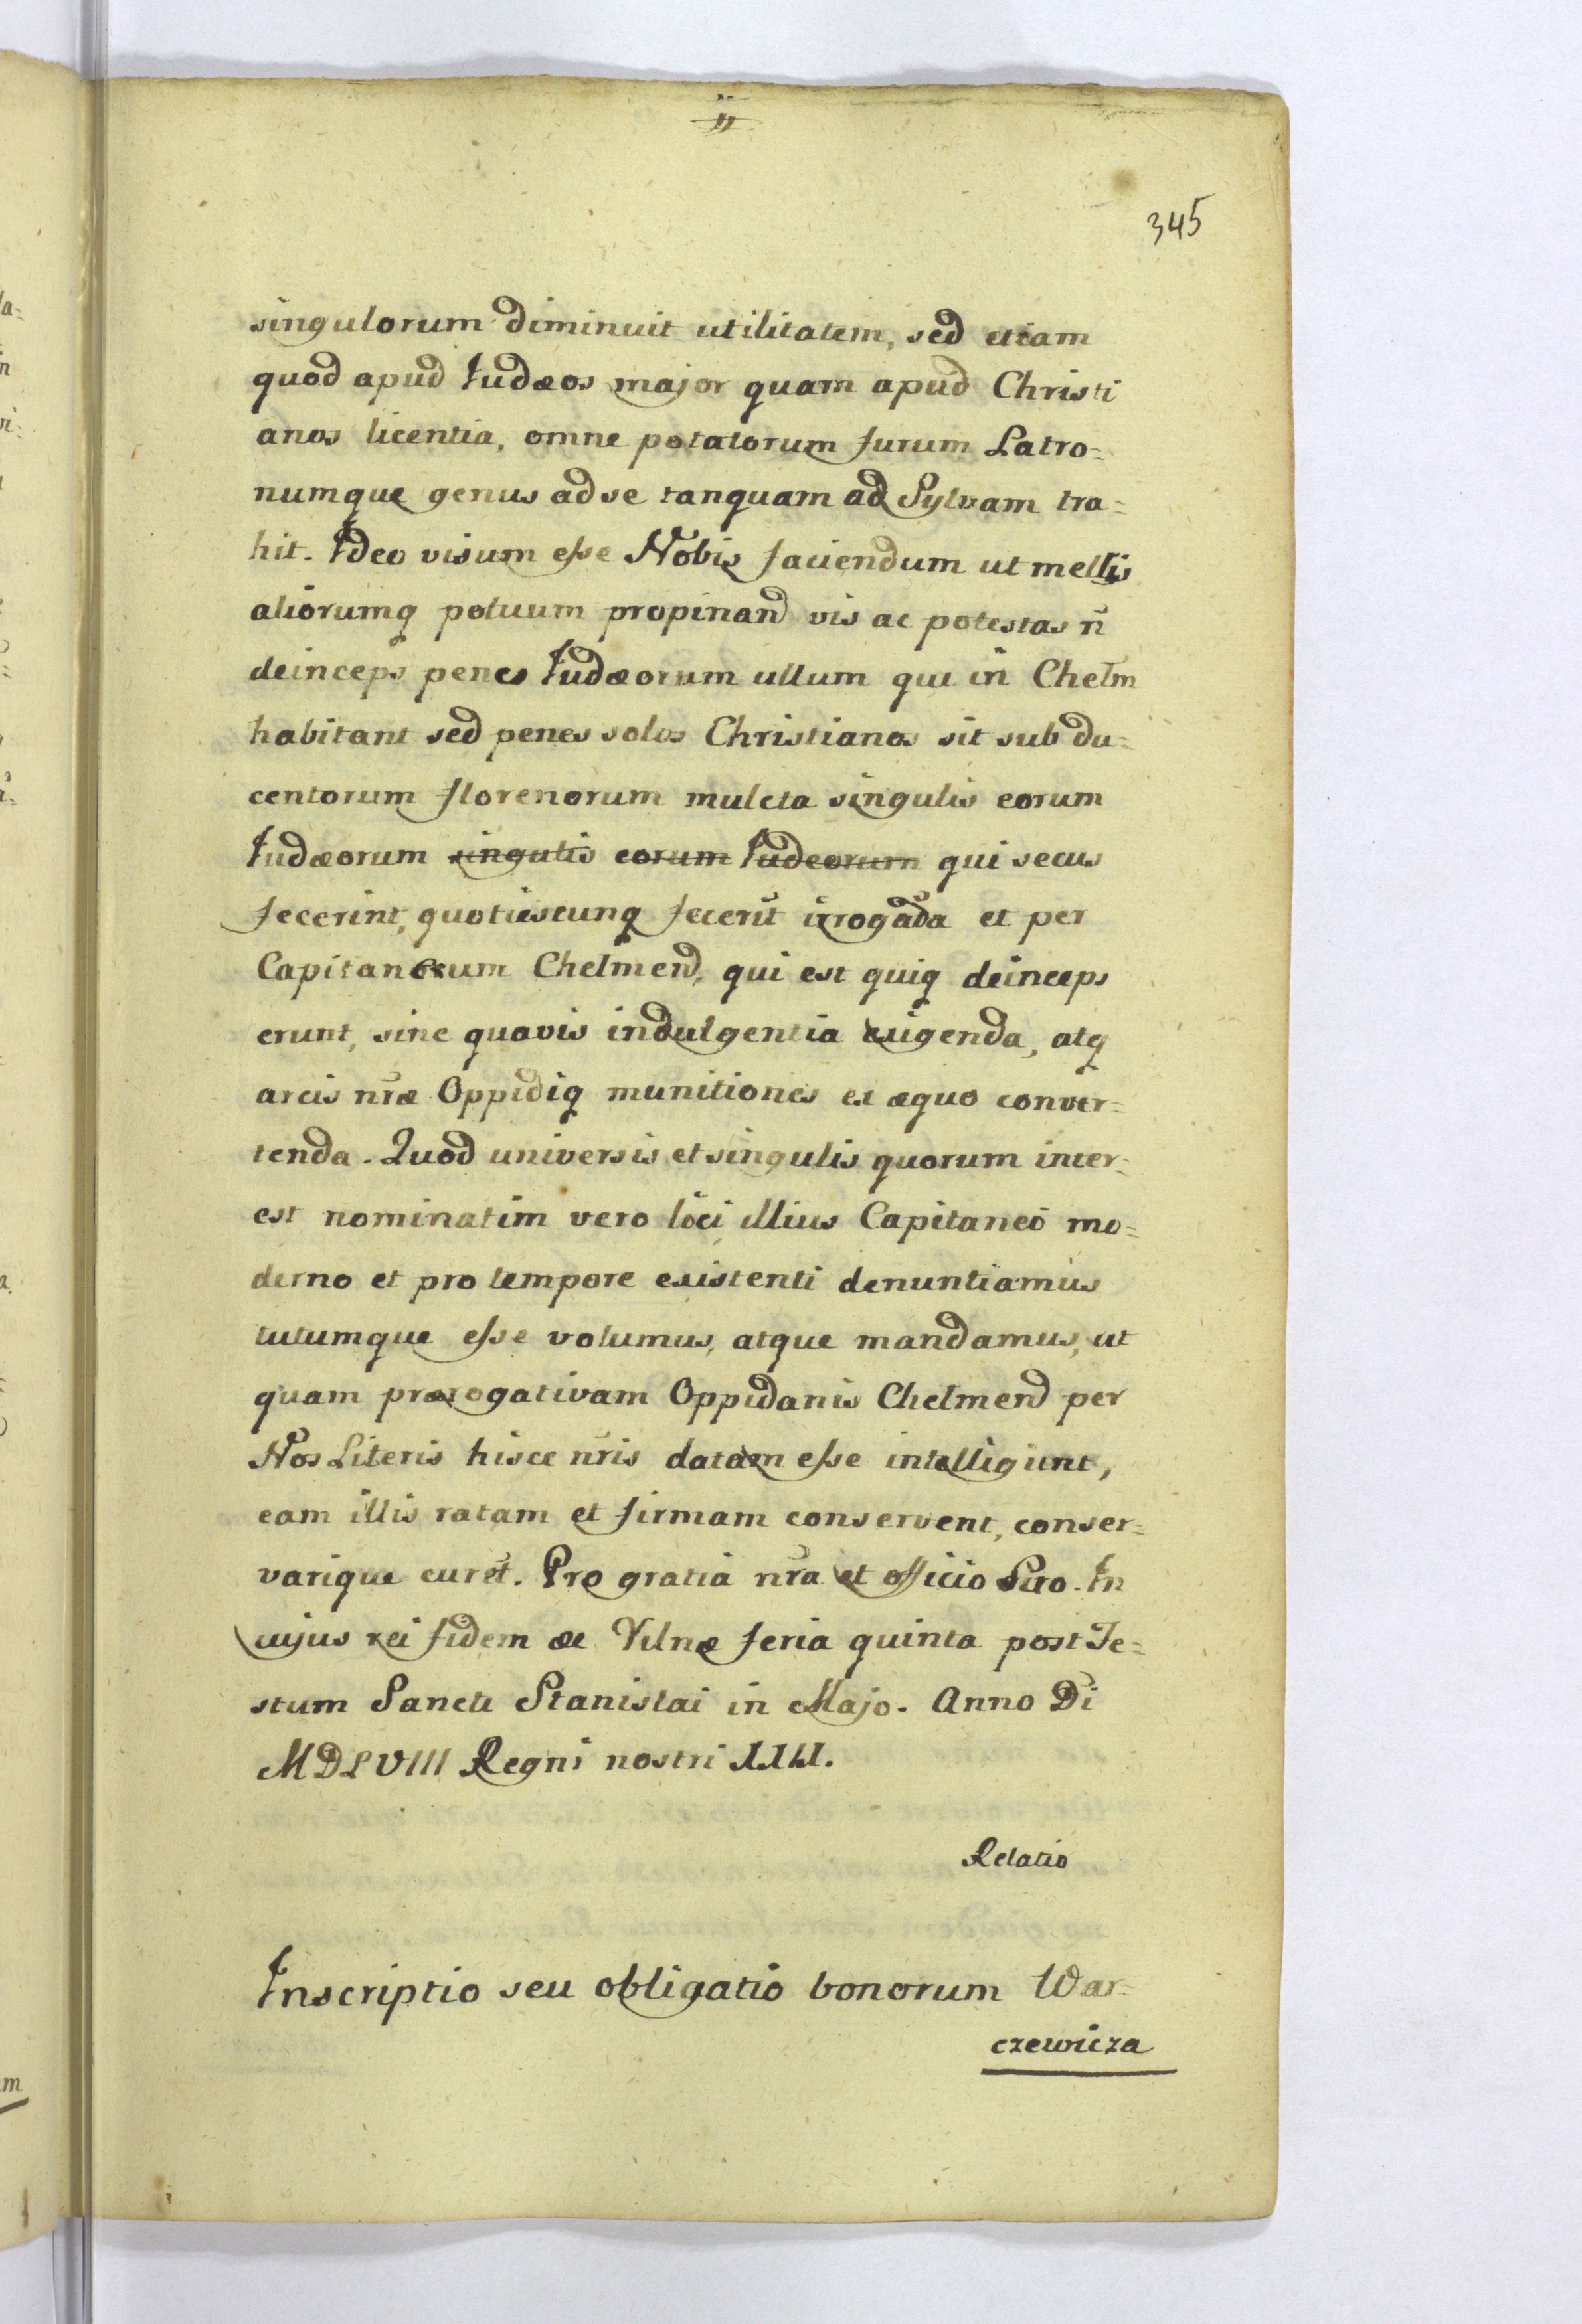 11
345
singulorum diminuit utilitatem, sed etiam
quod apud Iudæos major quam apud Christi
anos licentia, omne potatorum furum Latro=
numque genus ad se tanquam ad Sylvam tra=
hit. Ideo visum esse Nobis faciendum ut mellis
aliorumq potuum propinand vis ac potestas n̄
deinceps penes Iudæorum ullum qui in Chelm
habitant sed penes solos Christianos sit sub du=
centorum florenorum mulcta singulis eorum
Iudæorum singulis eorum Iudeorum qui secus
fecerint, quotiescunq fecerūt irrogāda et per
Capitaneum Chelmend, qui est quiq deinceps
erunt, sine quavis indulgentia exigenda, atq
arcis nr̄æ Oppidiq munitiones ex æquo conver=
tenda. Quod universis et singulis quorum inter=
est nominatim vero loci illius Capitaneo mo=
derno et pro tempore existenti denuntiamus
tutumque esse volumus, atque mandamus, ut
quam prærogativam Oppidanis Chelmend per
Nos Literis hisce nr̄is datam esse intelligunt,
eam illis ratam et firmam conservent, conser=
varique curēt. Pro gratia nr̄a et officio Suo. In
cujus rei fidem &c Vilnæ feria quinta post Fe=
stum Sancti Stanislai in Majo. Anno Dī
MDLVIII Regni nostri XXIX.
Relatio
Inscriptio seu obligatio bonorum War=
czewicza